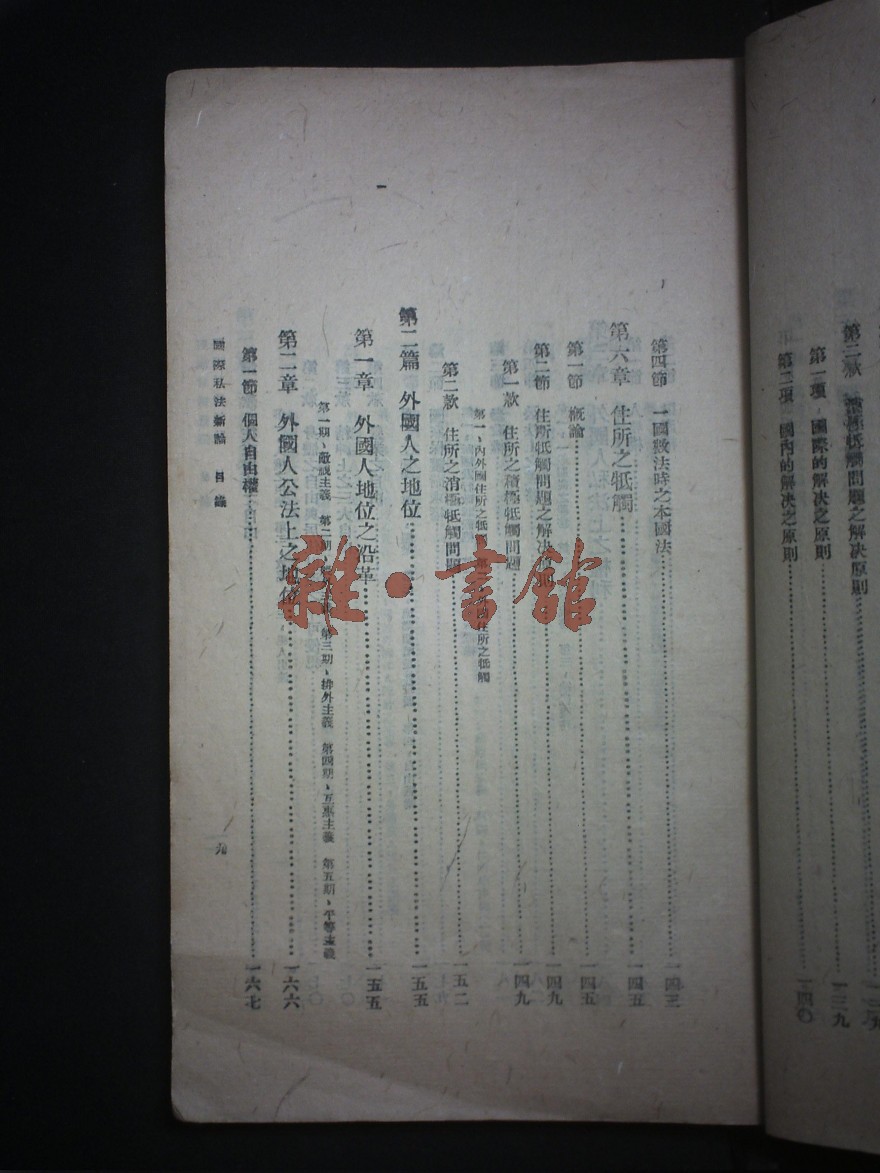 第二款 消極牴觸問題之解決原則……一三九
第一項 國際的解決之原則……一三九
第二項 國內的解決之原則……一四〇
第四節 一國數法時之本國法……一四三
第六章 住所之牴觸……一四五
第一節 概論……一四五
第二節 住所牴觸問題之解決……則……一四九
第一款 住所之積極牴觸問題……一四九
第一、內外國住所之牴觸 第二、外國住所之牴觸
第二款 住所之消極牴觸問題……一五二
第二篇 外國人之地位……一五五
第一章 外國人地位之沿革……一五五
第一期、敵視主義 第二期、 第三期、排外主義 第四期、互惠主義 第五期、平等主義
第二章 外國人公法上之地位……一六六
第一節 個人自由權……一六七
國際私法新論 目錄
九
雜·書館